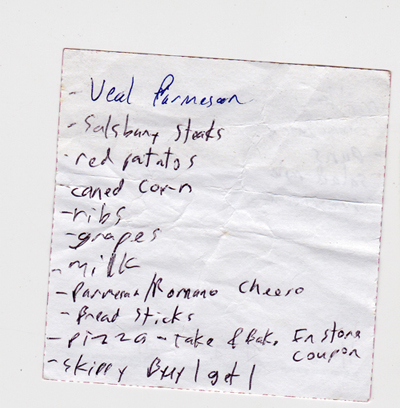 - Veal Parmesan
- Salsbury Steaks
- red patatos
- caned corn
- ribs
- grapes
- milk
- Parmesan/Romano Cheero
- Bread Sticks
- Pizza - Take & Bak, In store
coupon
- Skippy Buy 1 get 1